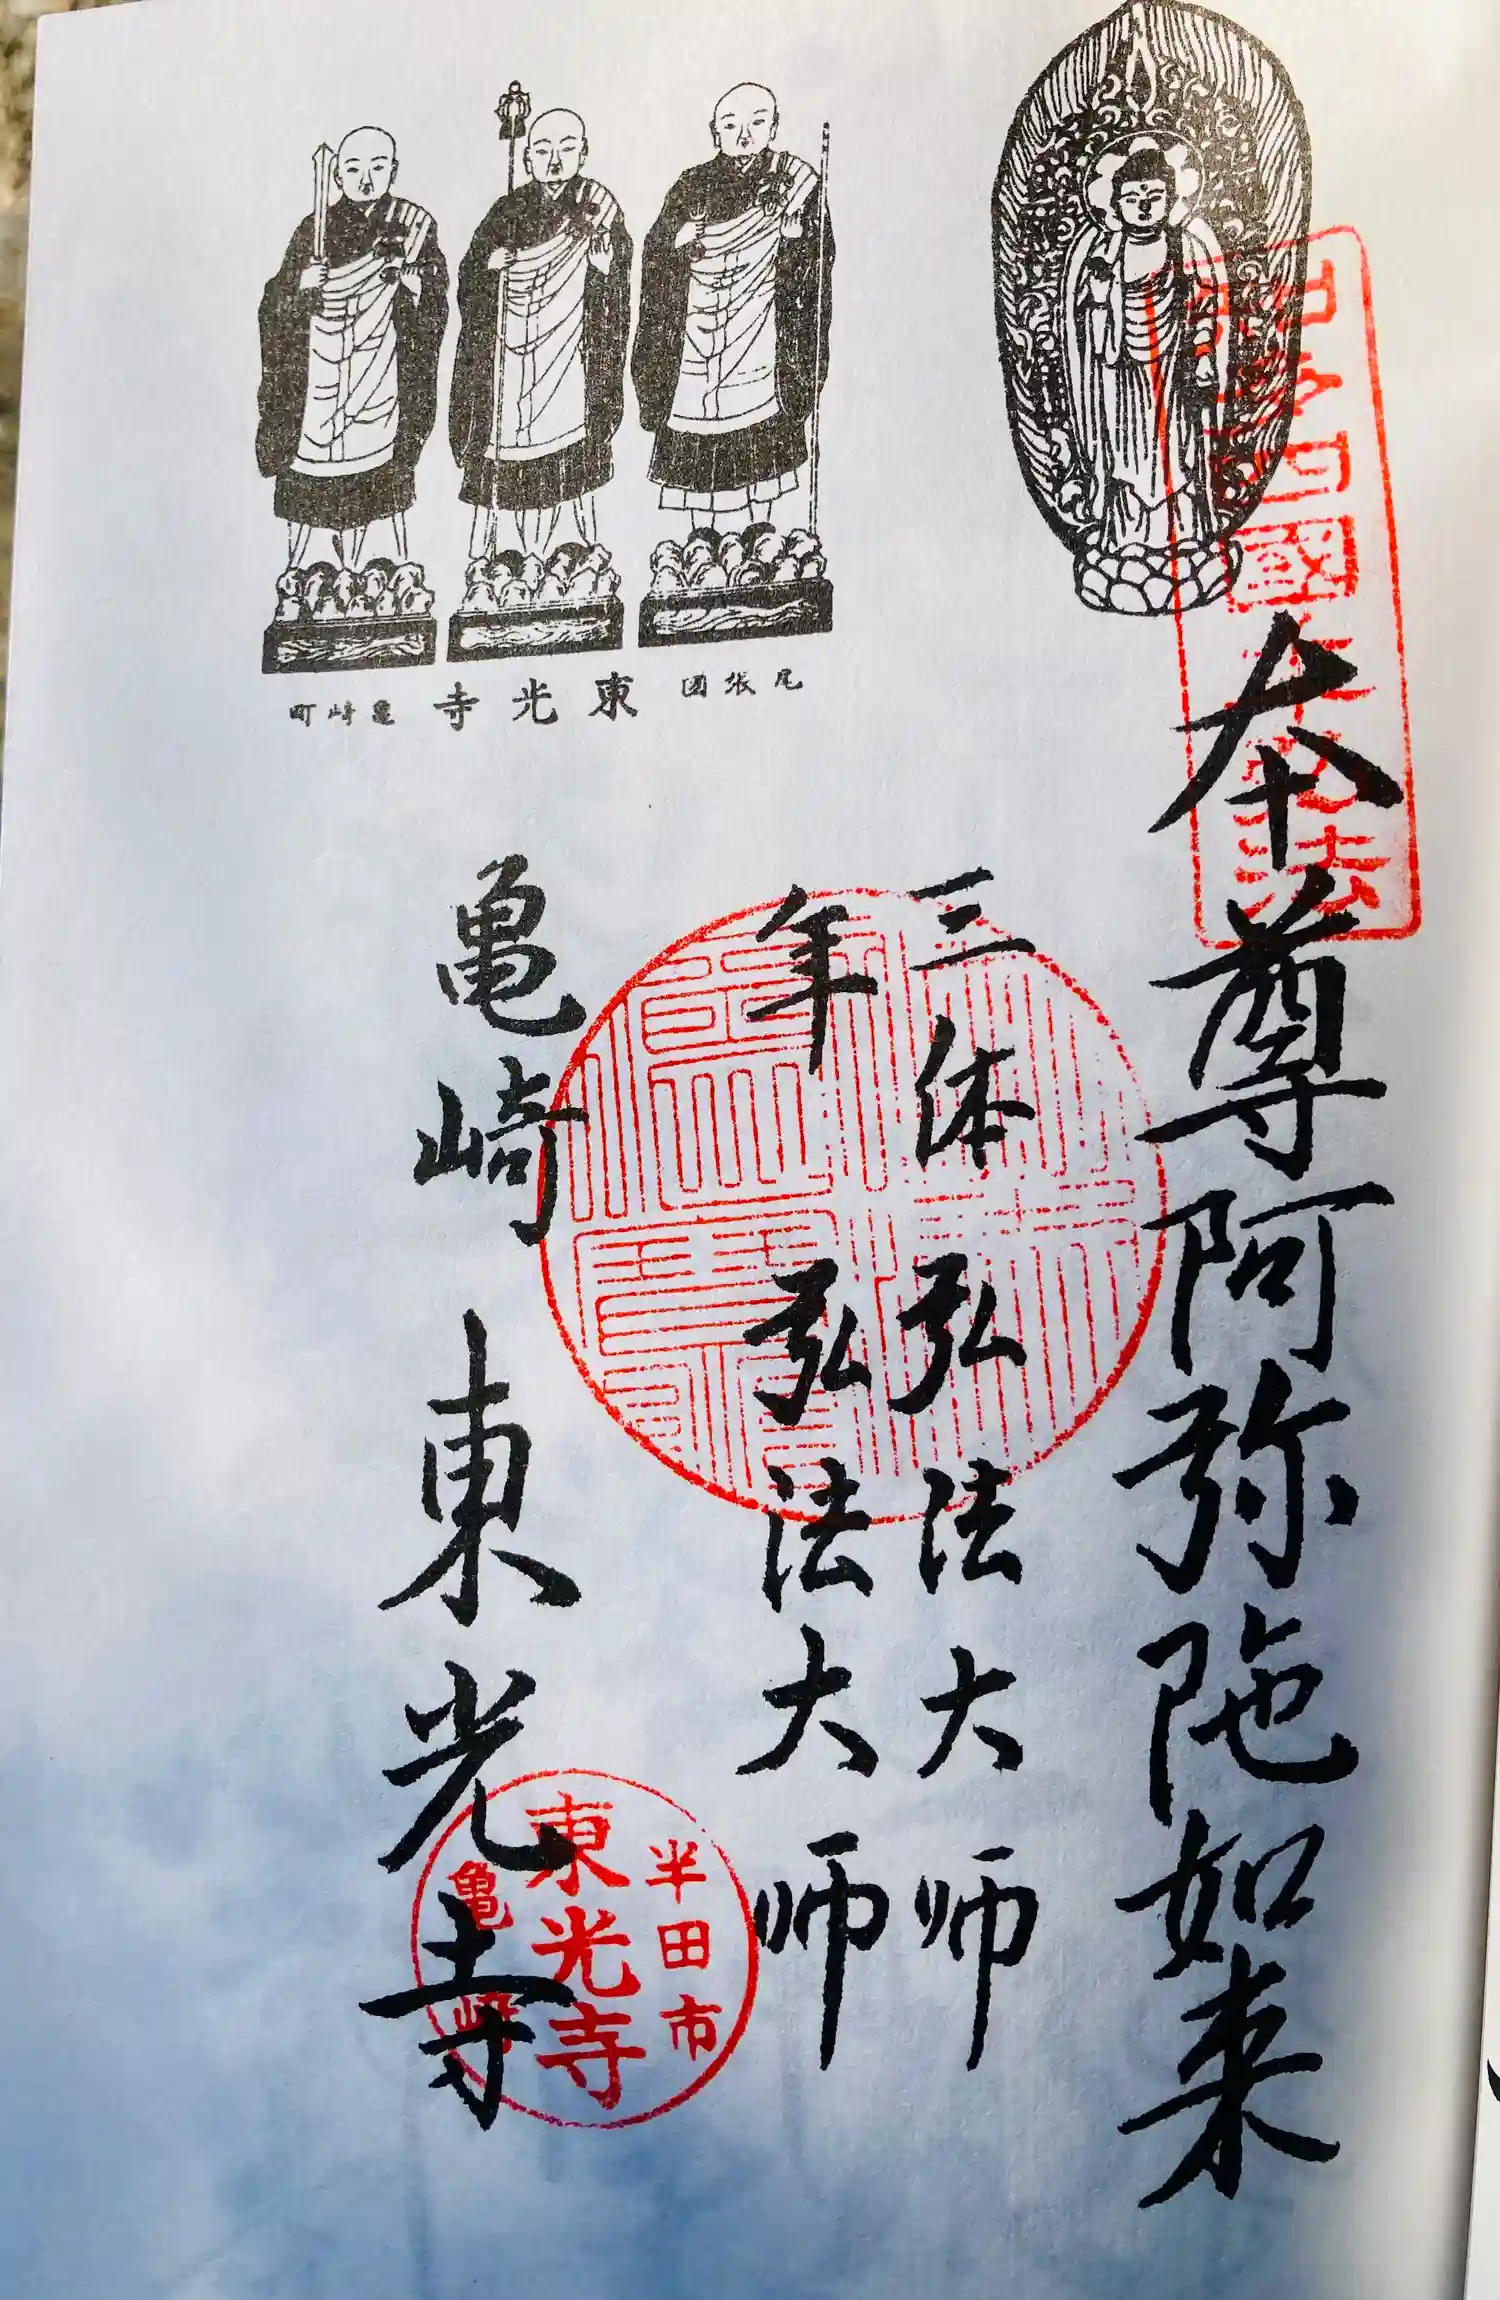 尾張国 東光寺 亀崎町
本尊阿弥陀如来
三体弘法大師
年弘法大師
亀崎 東光寺
半田市
東光寺
亀崎